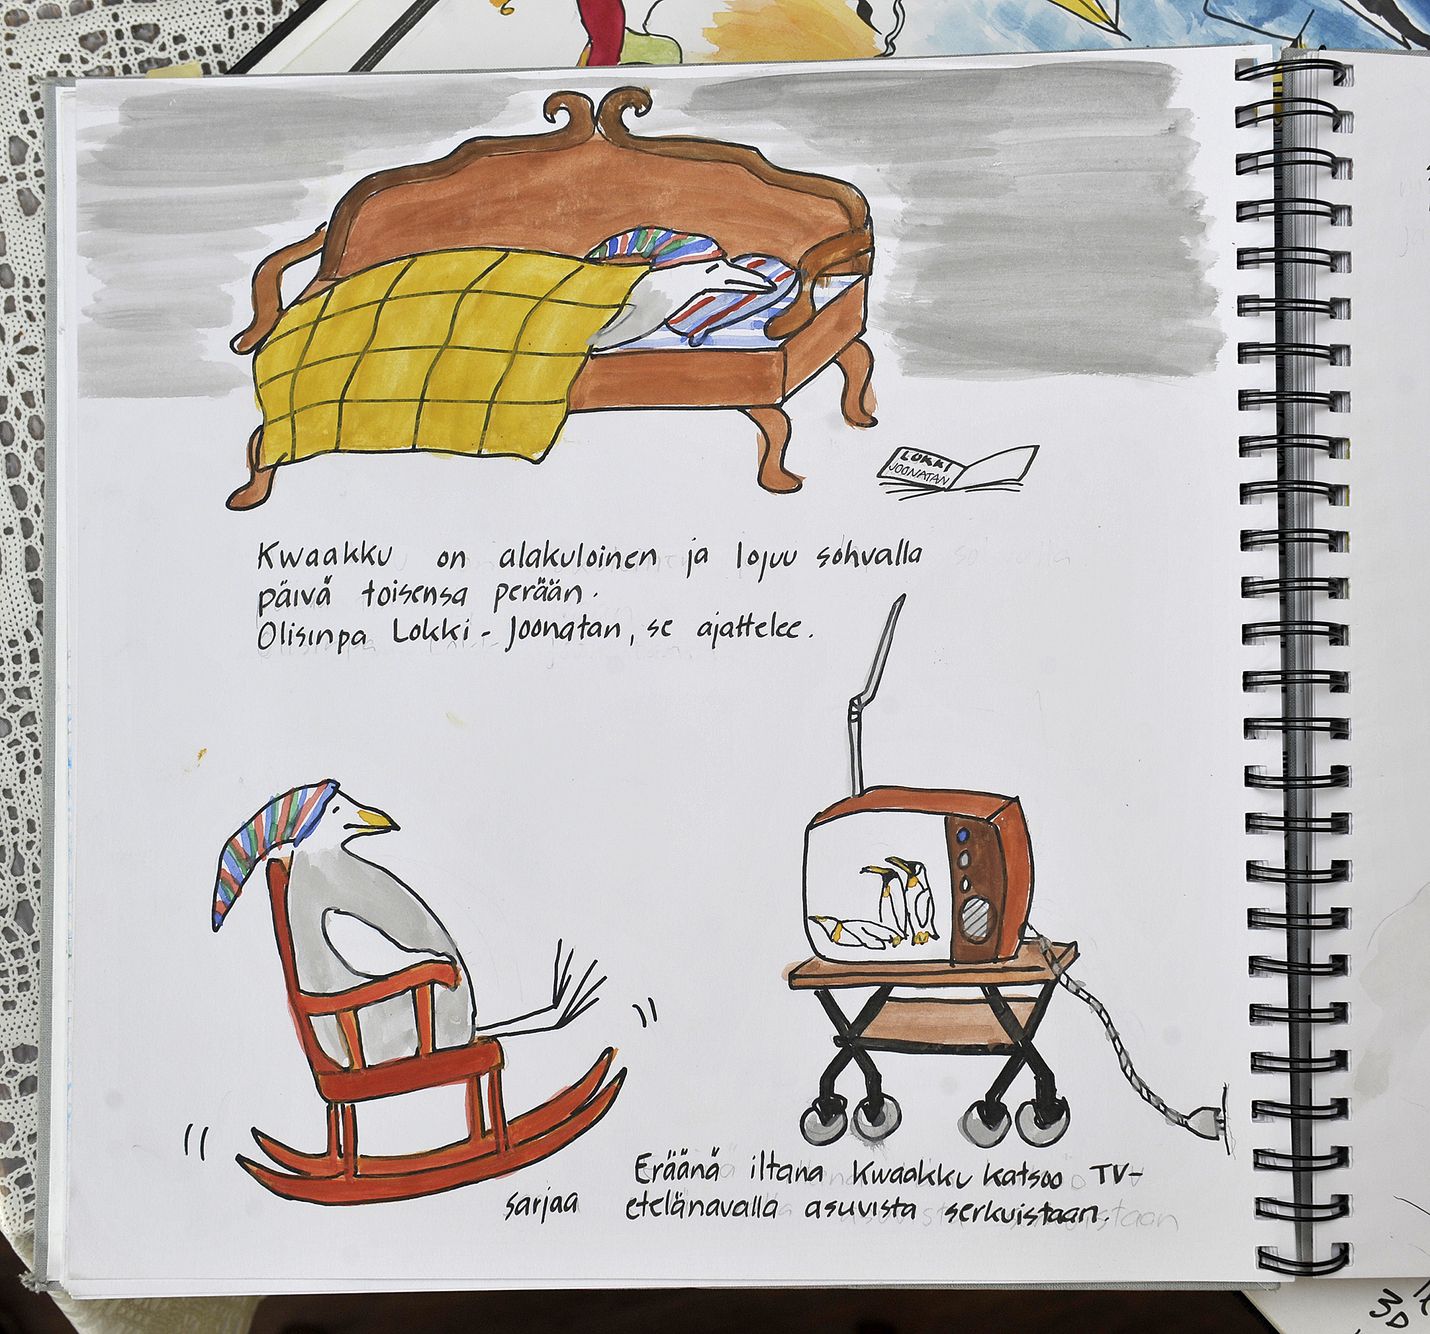 LOKKI
JOONATAN
Kwaakku on alakuloinen ja lojuu sohvalla
päivä toisensa perään.
Olisinpa Lokki - Joonatan, se ajattelee.
Eräänä iltana Kwaakku katsoo TV-
sarjaa etelänavalla asuvista serkuistaan.
3D